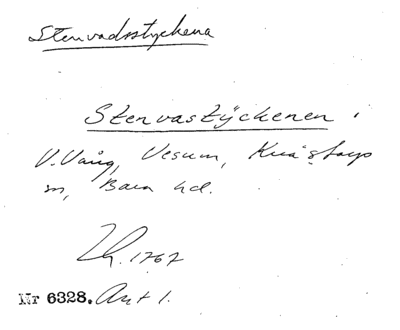 Stenvadsstyckena
Stenvastÿckenen i
V. Vång, Vesum, Knästorps
sn, Bara hd.
1767
Nr 6328. Ant 1.